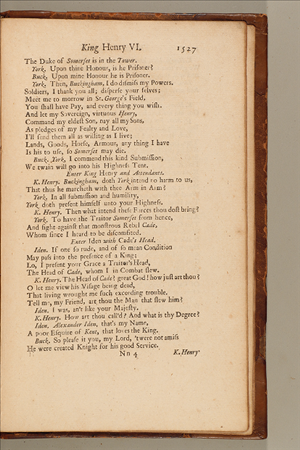 King Henry VI. 1527
The Duke of Somerset is in the Tower.
York. Upon thine Honour, is he Prisoner?
Buck. Upon mine Honour he is Prisoner.
York. Then, Buckingham, I do dismiss my Powers.
Soldiers, I thank you all; disperse your selves;
Meet me to morrow in St. George's Field,
You shall have Pay, and every thing you wish.
And let my Sovereign, vertuous Henry,
Command my eldest Son, nay all my Sons,
As pledges of my Fealty and Love,
I'll send them all as willing as I live;
Lands, Goods, Horse, Armour, any thing I have
Is his to use, so Somerset may die.
Buck. York, I commend this kind Submission,
We twain will go into his Highness Tent.
Enter King Henry and Attendants.
K. Henry. Buckingham, doth York intend no harm to us,
That thus he marcheth with thee Arm in Arm?
York. In all submission and humility,
York doth present himself unto your Highness.
K. Henry. Then what intend these Forces thou dost bring?
York. To have the Traitor Somerset from hence,
And fight against that monstrous Rebel Cade,
Whom since I heard to be discomfited.
Enter Iden with Cade's Head.
Iden. If one so rude, and of so mean Condition
May pass into the presence of a King:
Lo, I present your Grace a Traitor's Head,
The Head of Cade, whom I in Combat slew.
K. Henry. The Head of Cade? great God! how just art thou?
O let me view his Visage being dead,
That living wrought me such exceeding trouble.
Tell me, my Friend, art thou the Man that slew him?
Iden. I was, an't like your Majesty.
K. Henry. How art thou call'd? And what is thy Degree?
Iden. Alexander Iden, that's my Name,
A poor Esquire of Kent, that loves the King.
Buck. So please it you, my Lord, 'twere not amiss
He were created Knight for his good Service.
N n 4 K. Henry